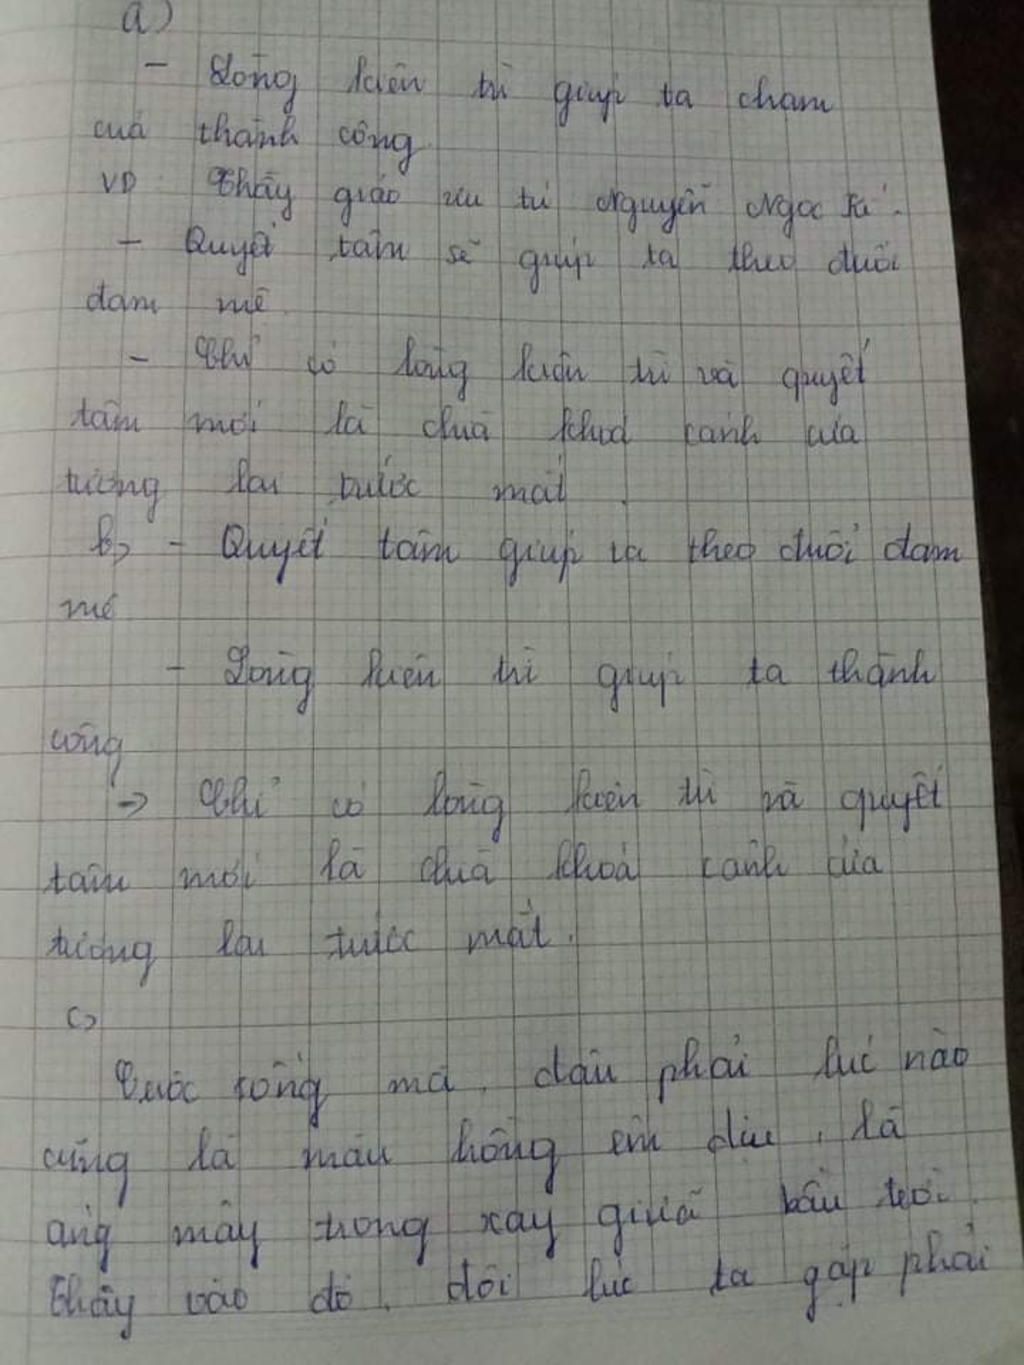 a)
- Lòng kiên trì giúp ta chạm
cửa thành công
VD: Thầy giáo ưu tú Nguyễn Ngọc Kí.
- Quyết tâm sẽ giúp ta theo đuổi
đam mê
- Chỉ có lòng kiên trì và quyết
tâm mới là chìa khoá cánh cửa
tương lai trước mắt.
b) - Quyết tâm giúp ta theo đuổi đam
mê
- Lòng kiên trì giúp ta thành
công
-> Chỉ có lòng kiên trì và quyết
tâm mới là chìa khoá cánh cửa
tương lai trước mắt.
c)
Cuộc sống mà, đâu phải lúc nào
cũng là màu hồng êm dịu, là
áng mây trong xay giữa bầu trời.
Thay vào đó, đôi lúc ta gặp phải